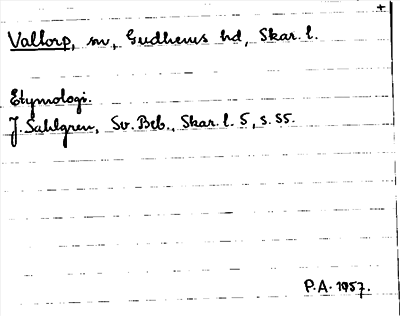 +
Valtorp, sn, Gudhems hd, Skar. l.
Etymologi.
J. Sahlgren, Sv. Beb., Skar. l. 5, s. 55.
P.A. 1957.